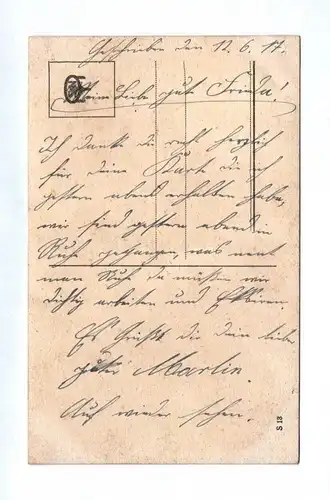 Geschrieben den 12.6.17.
Meine Liebe gute Frieda!
Ich danke dir recht herzlich
für deine Karte die ich
gestern abend erhalten habe,
wir sind gestern abend in
Ruh gegangen, was nent
man Ruh da müssen wir
dichtig arbeiten und
Es Grüßt dir dein liebe
guter Martin.
Auf wieder sehen.
S 13